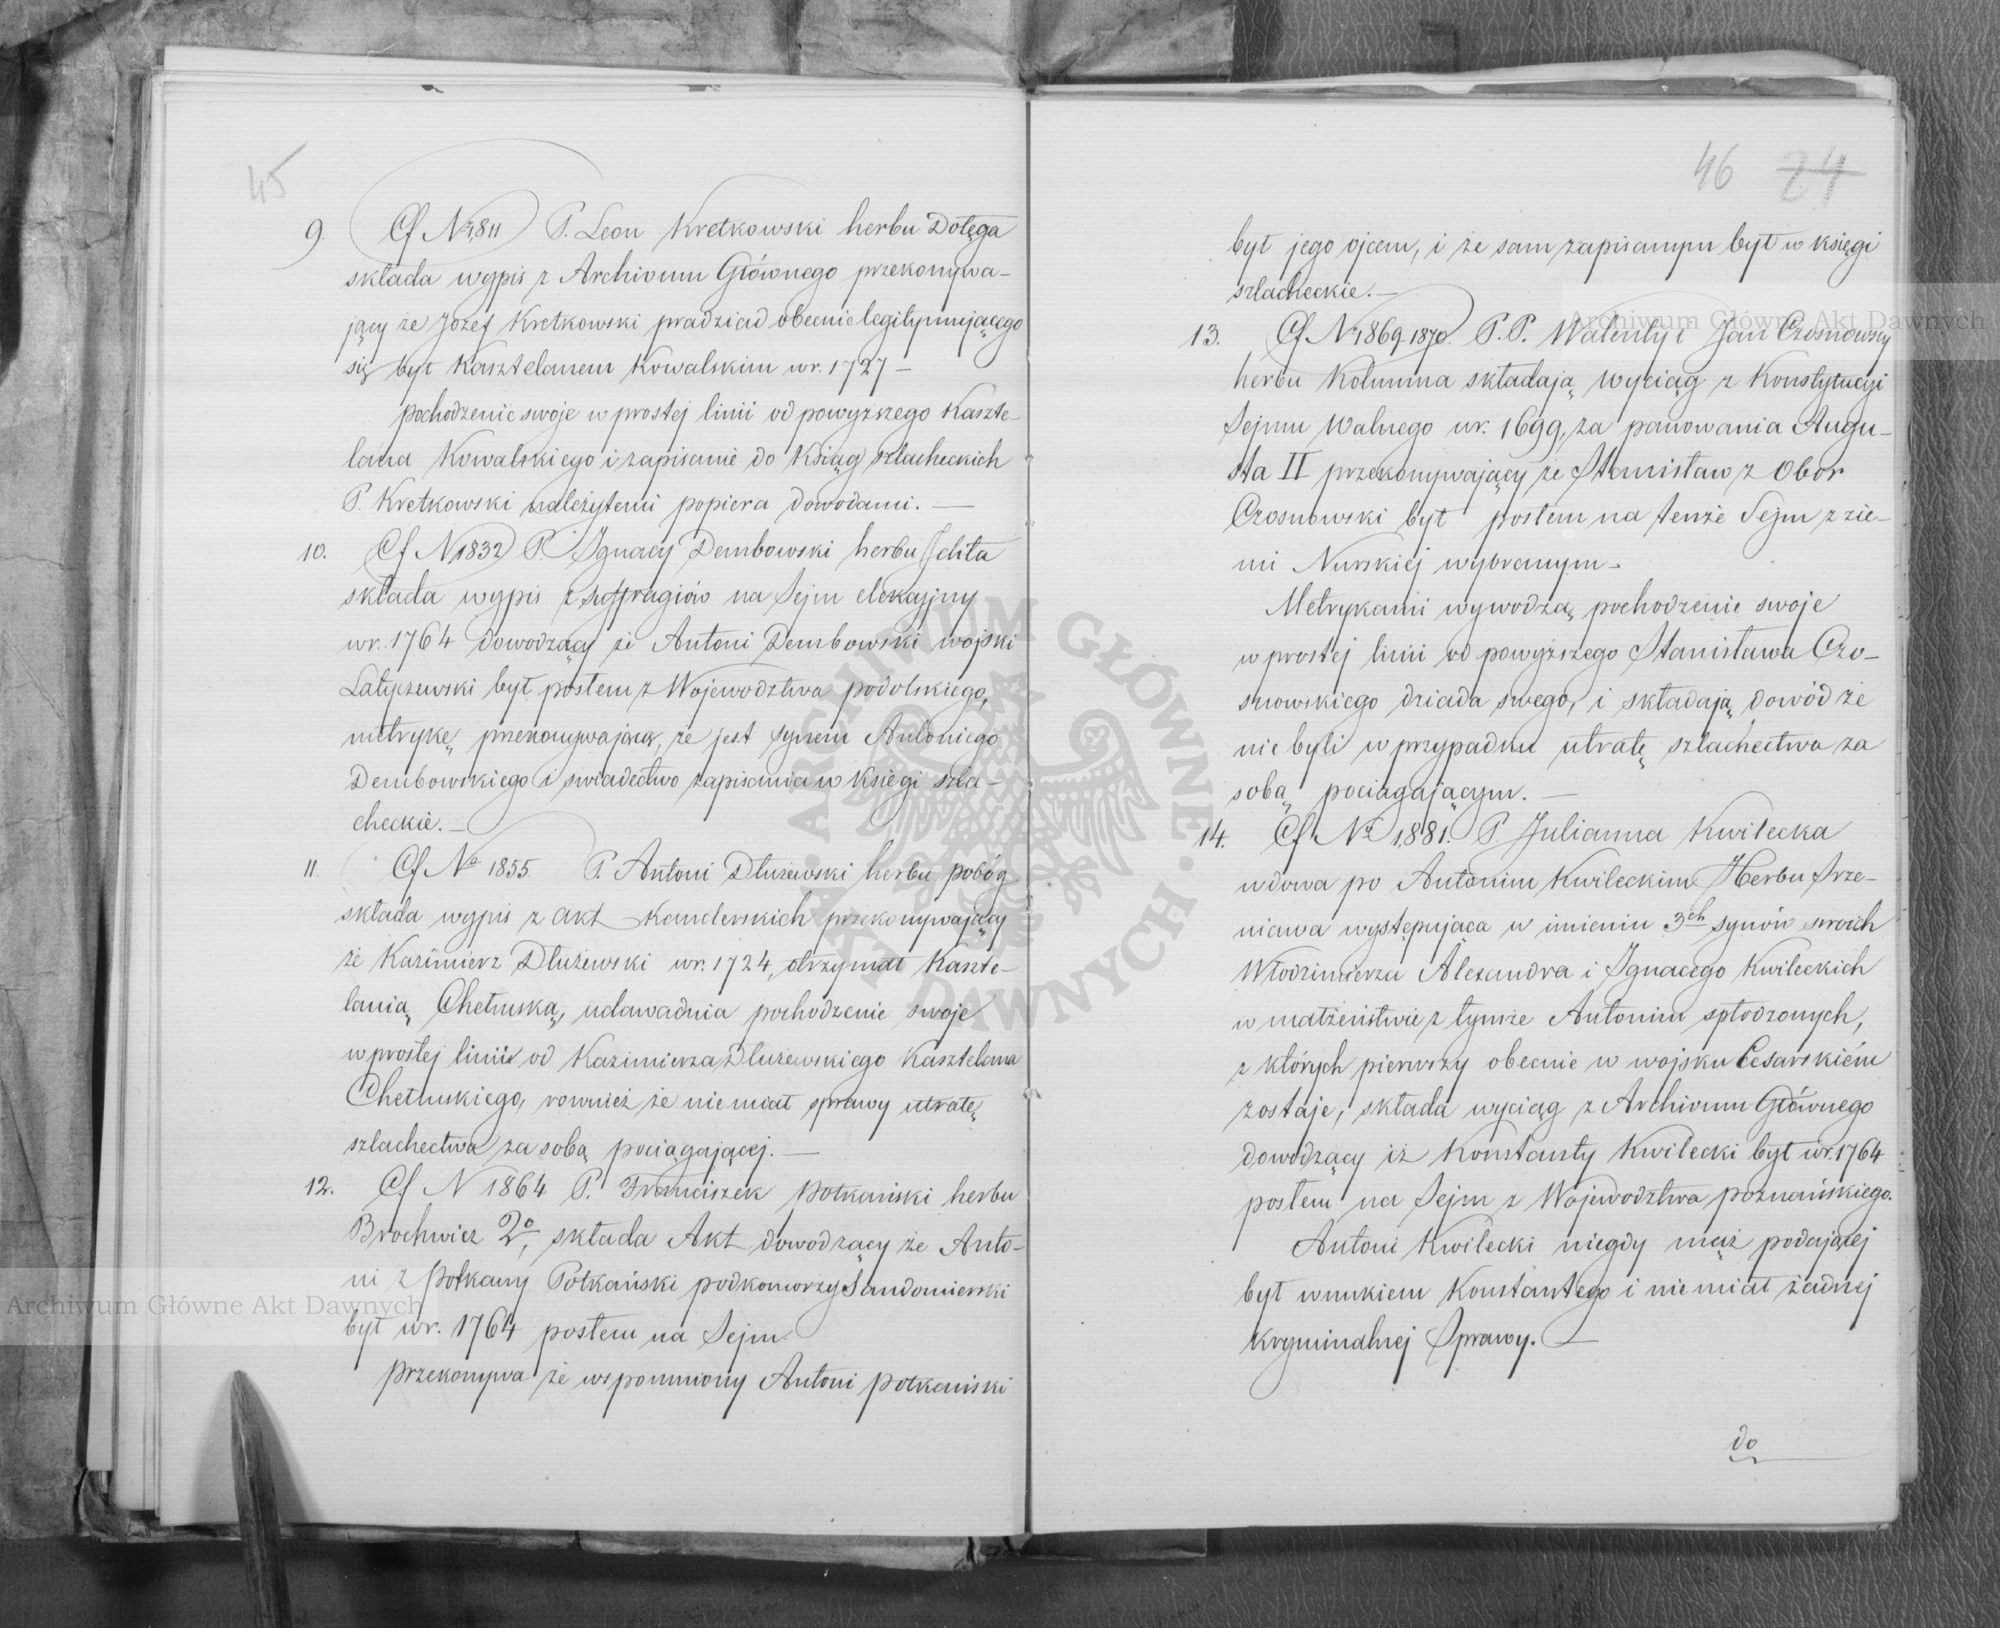 45
9. Cf N1,811 P. Leon Kretkowski herbu Dołęga
składa wypis z Archivum Głównego przekonywa-
jący że Jozef Kretkowski pradziad obecnie legitymującego
się był Kasztelanem Kowalskim w r. 1727 –
pochodzenie swoje w prostej linii od powyższego Kaszte-
lana Kowalskiego i zapisanie do Ksiąg szlacheckich
P. Kretkowski należytemi popiera dowodami. —
10. Cf N 1832 P. Ignacy Dembowski herbu Jelita
składa wypis z suffragiów na Sejm elekcyjny
w r. 1764 dowodzący że Antoni Dembowski wojski
Latyczewski był posłem z Województwa podolskiego,
metrykę przekonywającą, że jest synem Antoniego
Dembowskiego i swiadectwo zapisania w Księgi szla-
checkie. —
11. Cf No 1855 P. Antoni Dłużewski herbu pobóg
składa wypis z akt Kanclerskich przekonywający
że Kaźimierz Dłużewski w r. 1724, otrzymał Kaszte-
lanią Chełmską, udawadnia pochodzenie swoje
w prostej linii od Kazimierza Dłużewskiego Kasztelana
Chełmskiego, rownież że nie miał sprawy utratę
szlachectwa za sobą pociągającej. —
12. Cf N 1864 P. Franciszek Potkański herbu
Brochwicz 2o, składa Akt dowodzący że Anto-
ni z Potkany Potkański podkomorzy Sandomierski
był w r. 1764 posłem na Sejm.
przekonywa że wspomniony Antoni potkański
46 24
był jego ojcem, i że sam zapisanym był w księgi
szlacheckie. —
13. Cf N 1869-1870. P. P. Walenty i Jan Czosnowscy
herbu Kolumna składają wyciąg z Konstytucyi
Sejmu Walnego w r. 1699, za panowania Augu-
sta II przekonywający że Stanisław z Obor
Czosnowski był posłem na tenże Sejm z zie-
mi Nurskiej wybranym –
Metrykami wywodzą pochodzenie swoje
w prostej linii od powyższego Stanisława Czo-
snowskiego dziada swego, i składają dowód że
nie byli w przypadku utratę szlachectwa za
sobą pociągającym. —
14. Cf No 1,881. P. Julianna Kwilecka
wdowa po Antonim Kwileckim Herbu Srze-
niawa występująca w imieniu 3ch synów swoich
Włodzimierza Alexandra i Ignacego Kwileckich
w małżeństwie z tymże Antonim spłodzonych,
z których pierwszy obecnie w wojsku Cesarskiém
zostaje, składa wyciąg z Archivum Głównego
dowodzący iż Konstanty Kwilecki był w r. 1764
posłem na Sejm z Województwa poznańskiego.
Antoni Kwilecki niegdy mąż podającej
był wnukiem Konstantego i nie miał żadnej
Kryminalnej Sprawy. —
do
Archiwum Główne Akt Dawnych
Archiwum Główne Akt Dawnych
ARCHIWUM GŁÓWNE AKT DAWNYCH